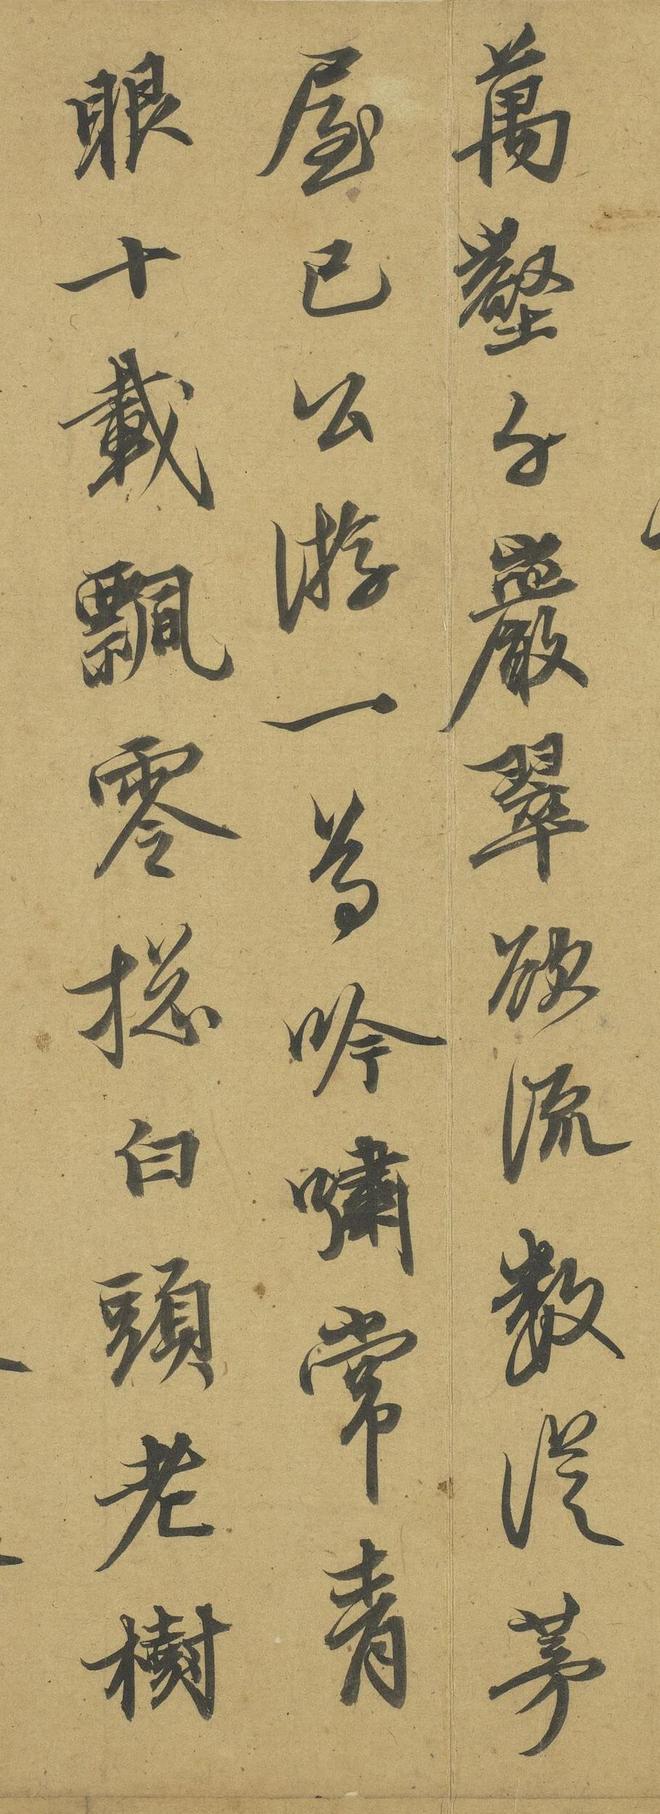 萬壑千巖翠欲流數從茅
屋已公游一為吟嘯常青
眼十載飄零捴白頭老樹